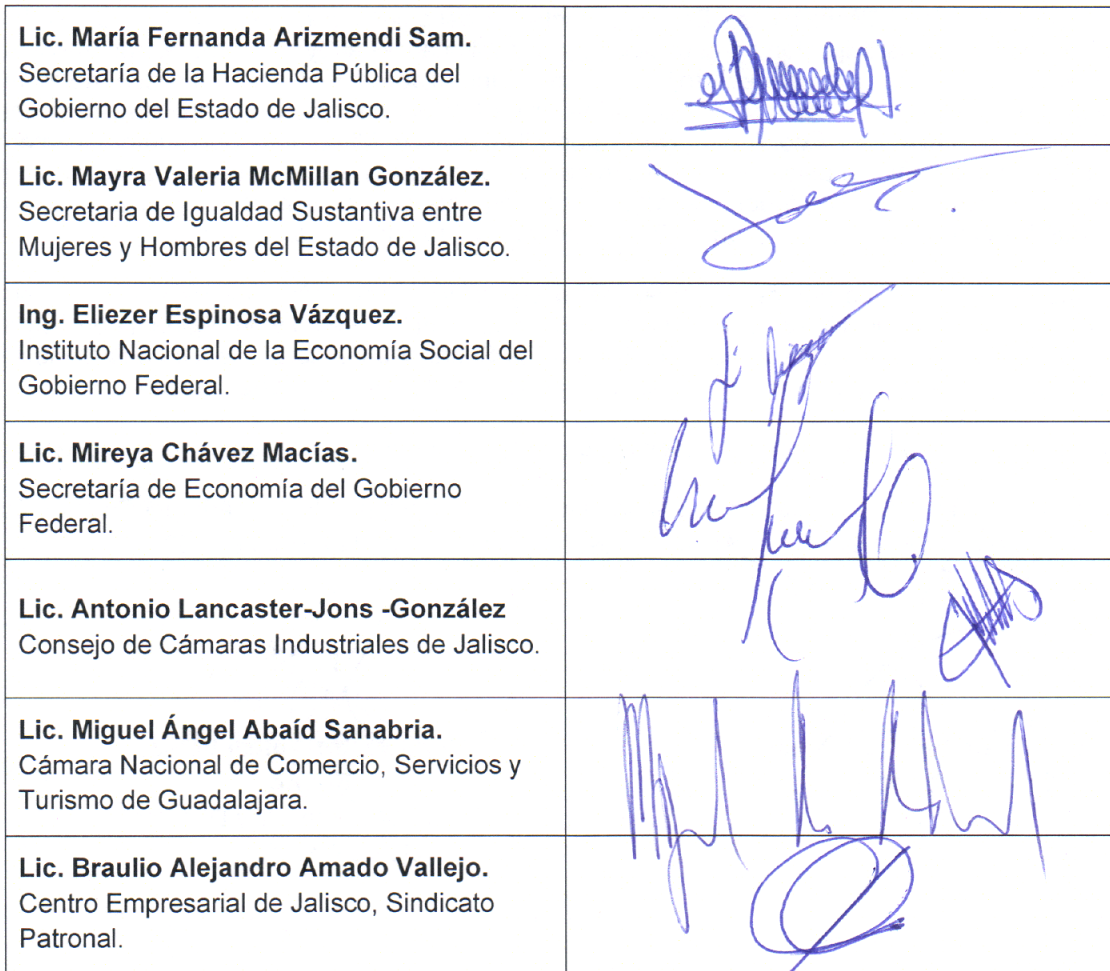 Lic. María Fernanda Arizmendi Sam.
Secretaría de la Hacienda Pública del
Gobierno del Estado de Jalisco.
Lic. Mayra Valeria McMillan González.
Secretaria de Igualdad Sustantiva entre
Mujeres y Hombres del Estado de Jalisco.
Ing. Eliezer Espinosa Vázquez.
Instituto Nacional de la Economía Social del
Gobierno Federal.
Lic. Mireya Chávez Macías.
Secretaría de Economía del Gobierno
Federal.
Lic. Antonio Lancaster-Jons -González
Consejo de Cámaras Industriales de Jalisco.
Lic. Miguel Ángel Abaíd Sanabria.
Cámara Nacional de Comercio, Servicios y
Turismo de Guadalajara.
Lic. Braulio Alejandro Amado Vallejo.
Centro Empresarial de Jalisco, Sindicato
Patronal.